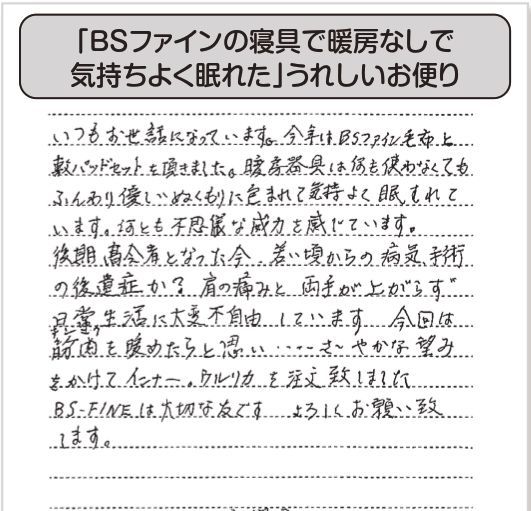 「BSファインの寝具で暖房なしで
気持ちよく眠れた」うれしいお便り
いつもお世話になっています。今年はBSファイン毛布と
敷パッドセットを頂きました。暖房器具は何も使わなくても
ふんわり優しいぬくもりに包まれて気持よく眠れて
います。何とも不思議な威力を感じています。
後期高令者となった今、若い頃からの病気、手術
の後遺症か?肩の痛みと両手が上がらず
日常生活に大変不自由しています 今回は
筋肉を暖めたらと思い‥‥‥さゝやかな望み
をかけてインナー。ウルリカを注文致しました
BS-FINEは大切な友です よろしくお願い致
します。